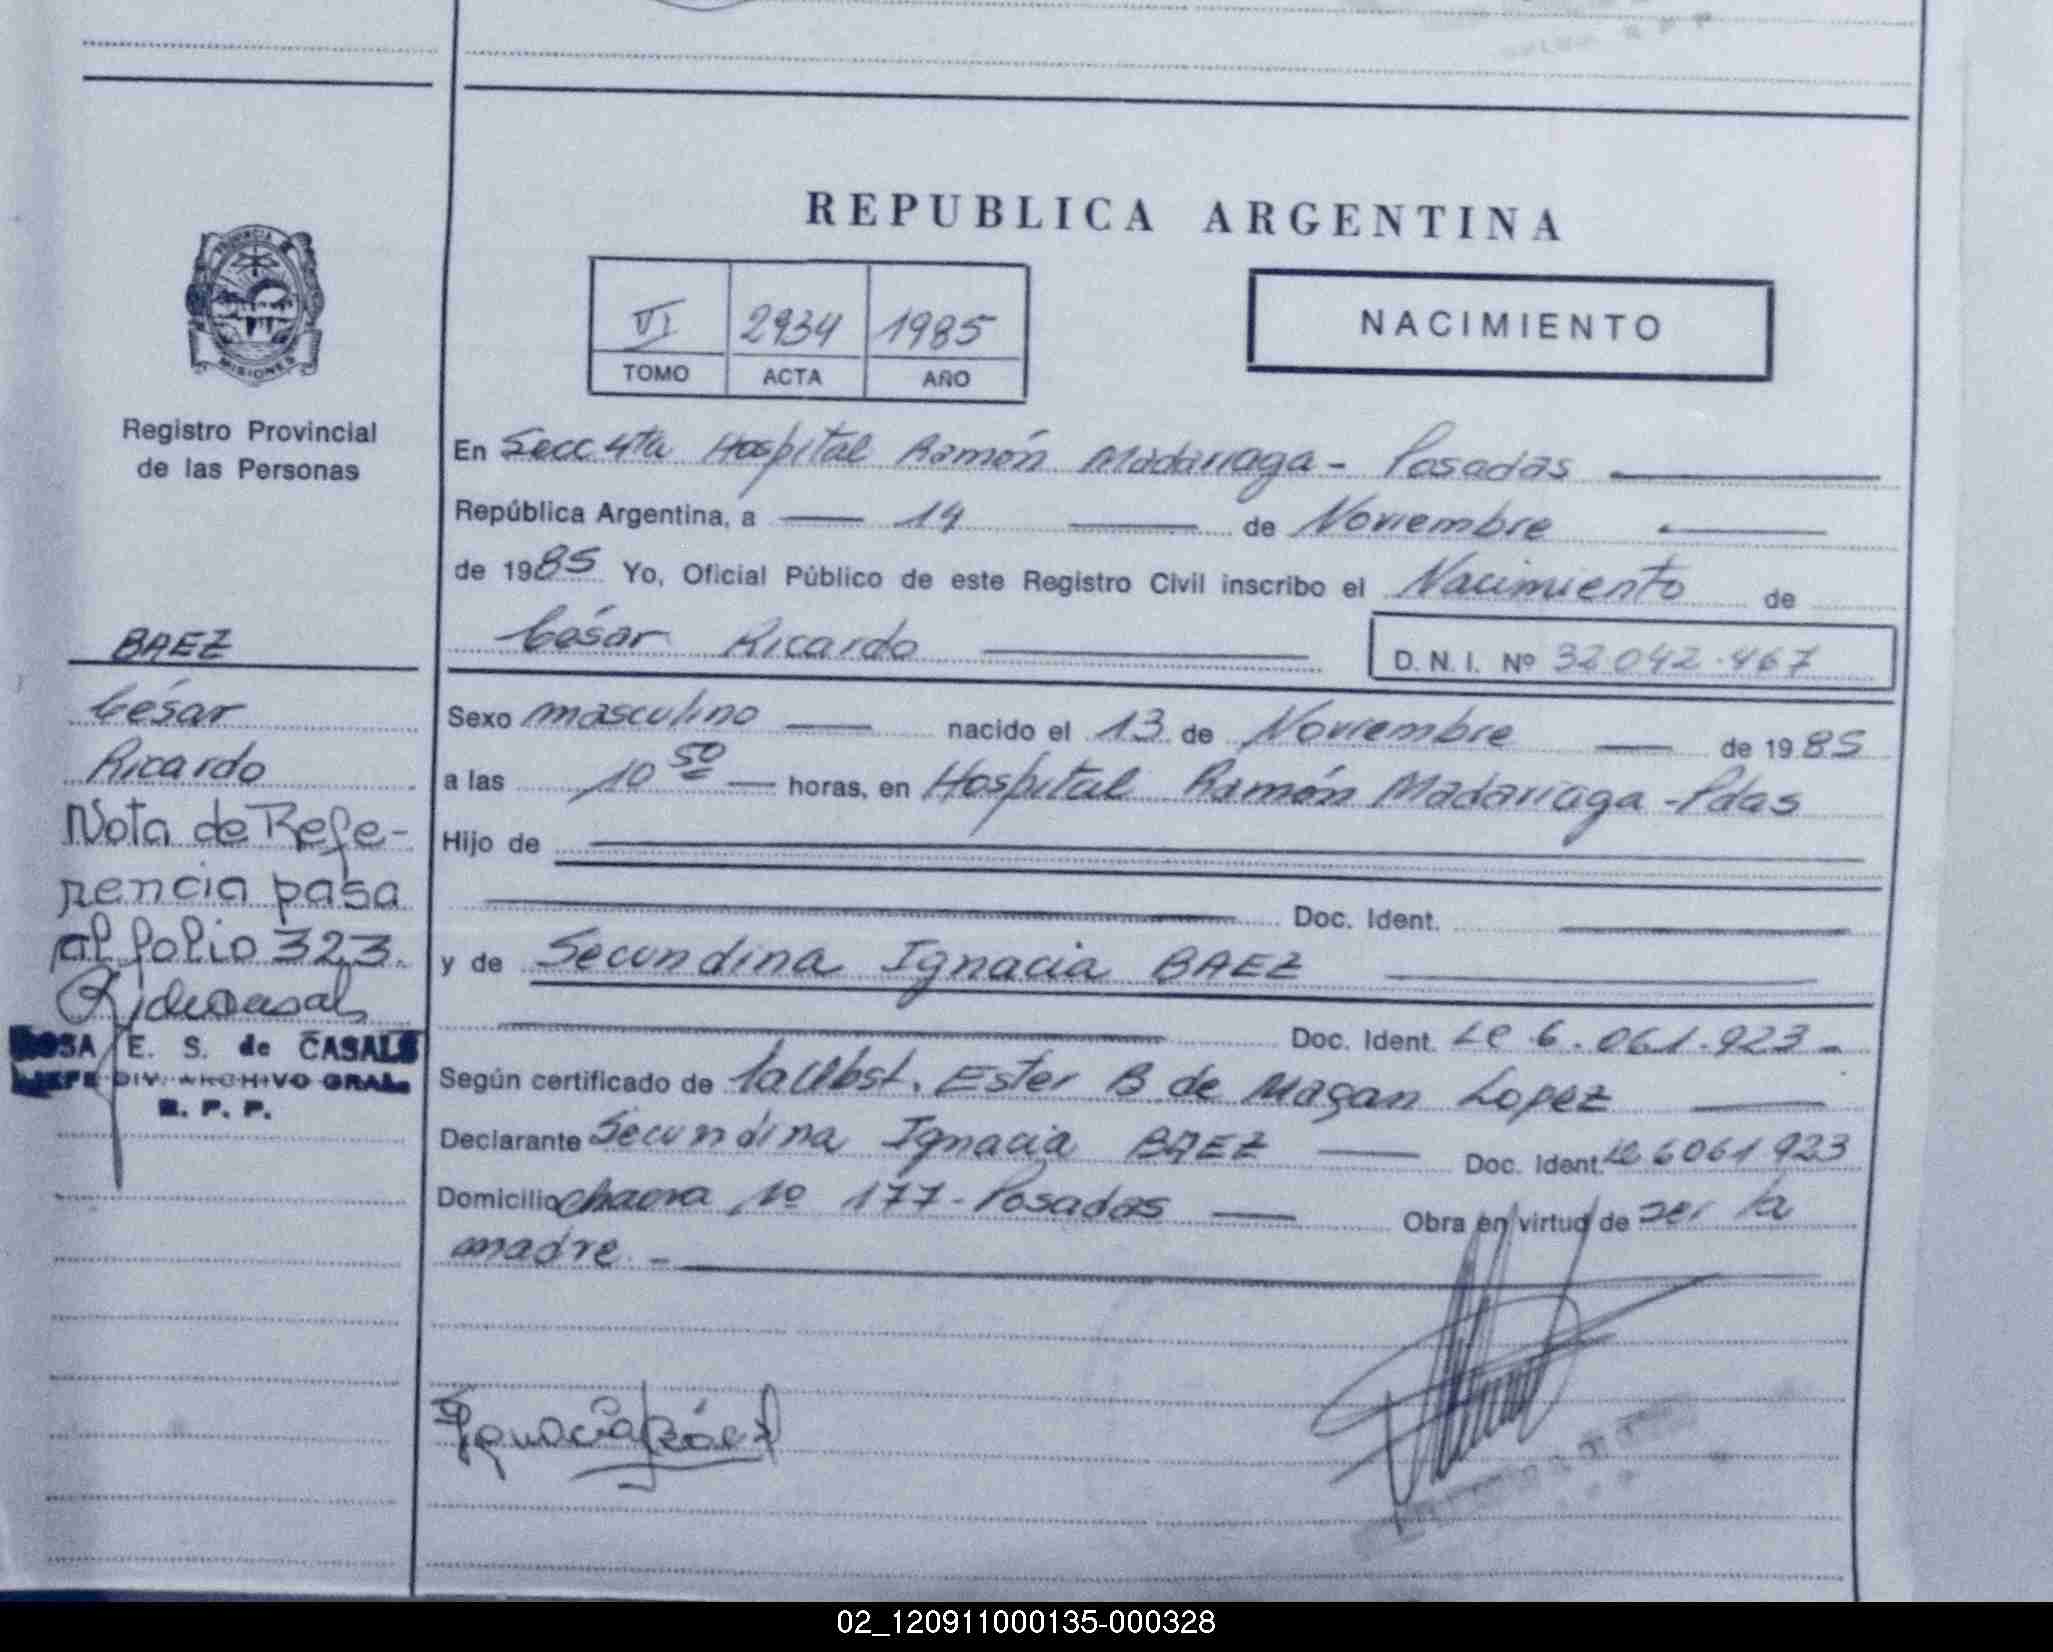 REPUBLICA ARGENTINA
VI 2934 1985
TOMO ACTA AÑO
NACIMIENTO
PROVINCIA DE
MISIONES
Registro Provincial
de las Personas
BAEZ
César
Ricardo
Nota de Refe-
rencia pasa
al folio 323.
ROSA E. S. de CASALS
JEFE DIV. ARCHIVO GRAL.
R. P. P.
En Secc 4ta Hospital Ramón Madariaga - Posadas
República Argentina, a 14 de Noviembre
de 1985 Yo, Oficial Público de este Registro Civil inscribo el Nacimiento de
César Ricardo D. N. I. Nº 32042.467
Sexo masculino nacido el 13 de Noviembre de 1985
a las 10 50 horas, en Hospital Ramón Madariaga - Pdas
Hijo de
Doc. Ident.
y de Secundina Ignacia BAEZ
Doc. Ident. LC 6.061.923 -
Según certificado de la Obst. Ester B de Magan Lopez
Declarante Secundina Ignacia BAEZ Doc. Ident. LC 6061923
Domicilio chacra Nº 177 - Posadas Obra en virtud de ser la
madre -
Ignacia Báez
02_120911000135-000328